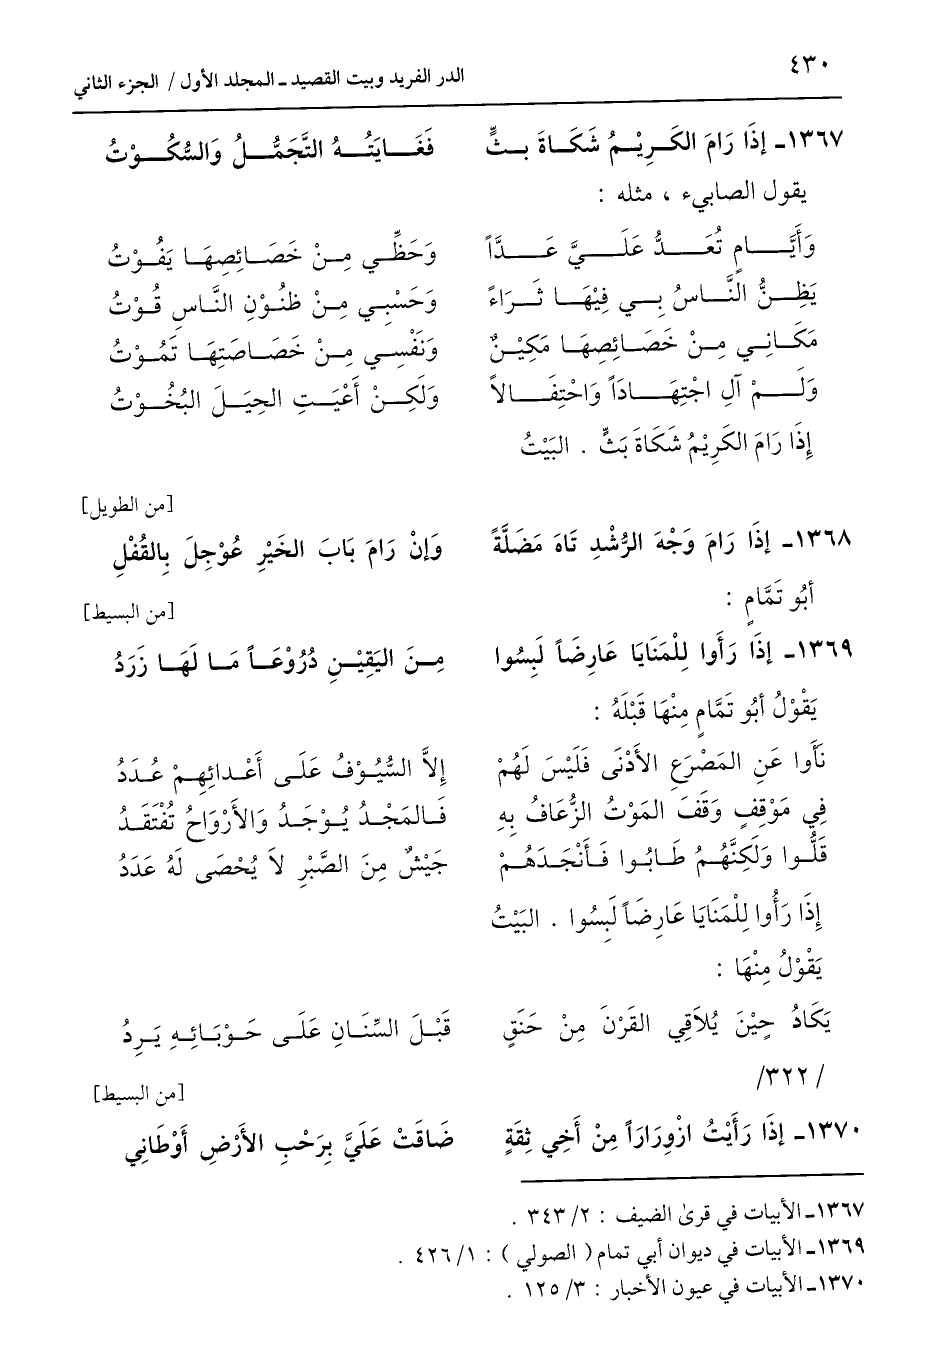 ٤٣٠
الدر الفريد وبيت القصيد ـ المجلد الأول / الجزء الثاني
١٣٦٧ـ إذَا رَامَ الكَرِيْمُ شَكَاةَ بَثٍّ فَغَايَتُهُ التَّجَمُّلُ وَالسُّكُوْتُ
يقول الصابيء ، مثله :
وَأَيَّامٍ تُعَدُّ عَلَيَّ عَدَّاً وَحَظِّي مِنْ خَصَائِصِهَا يَفُوْتُ
يَظِنُّ النَّاسُ بِي فِيْهَا ثَرَاءً وَحَسْبِي مِنْ ظنُوْنِ النَّاسِ قُوْتُ
مَكَانِي مِنْ خَصَائِصِهَا مَكِيْنٌ وَنَفْسِي مِنْ خَصَاصَتِهَا تَمُوْتُ
وَلَمْ آلِ اجْتِهَادَاً وَاحْتِفَالاً وَلَكِنْ أَعْيَتِ الحِيَلَ البُخُوْتُ
إِذَا رَامَ الكَرِيْمُ شَكَاةَ بَثٍّ . البَيْتُ
[من الطويل]
١٣٦٨ـ إذَا رَامَ وَجْهَ الرُّشْدِ تَاهَ مَضَلَّةً وَإنْ رَامَ بَابَ الخَيْرِ عُوْجِلَ بِالقُفْلِ
أبُو تَمَّامٍ :
[من البسيط]
١٣٦٩ـ إذَا رَأَوا لِلْمَنَايَا عَارِضَاً لَبِسُوا مِنَ اليَقِيْنِ دُرُوْعَاً مَا لَهَا زَرَدُ
يَقُوْلُ أبُو تَمَّامٍ مِنْهَا قَبْلَهُ :
نَأَوا عَنِ المَصْرَعِ الأَدْنَى فَلَيْسَ لَهُمْ إلاَّ السُّيُوْفُ عَلَى أَعْدائِهِمْ عُدَدُ
فِي مَوْقِفٍ وَقَفَ المَوْتُ الزُّعَافُ بِهِ فَالمَجْدُ يُوْجَدُ وَالأَرْوَاحُ تُفْتَقَدُ
قَلُّوا وَلَكِنَّهُمْ طَابُوا فَأَنْجَدَهُمْ جَيْشٌ مِنَ الصَّبْرِ لاَ يُحْصَى لَهُ عَدَدُ
إِذَا رَأُوا لِلْمَنَايَا عَارِضَاً لَبِسُوا . البَيْتُ
يَقُوْلُ مِنْهَا :
يَكَادُ حِيْنَ يُلاَقِي القَرْنَ مِنْ حَنَقٍ قَبْلَ السِّنَانِ عَلَى حَوْبَائِهِ يَرِدُ
/٣٢٢/
[من البسيط]
١٣٧٠ـ إذَا رَأَيْتُ ازْوِرَارَاً مِنْ أَخِي ثِقَةٍ ضَاقَتْ عَلَيَّ بِرَحْبِ الأَرْضِ أَوْطَانِي
١٣٦٧ـ الأبيات في قرىٰ الضيف : ٢/ ٣٤٣ .
١٣٦٩ـ الأبيات في ديوان أبي تمام ( الصولي ) : ١/ ٤٢٦ .
١٣٧٠ـ الأبيات في عيون الأخبار : ٣/ ١٢٥ .